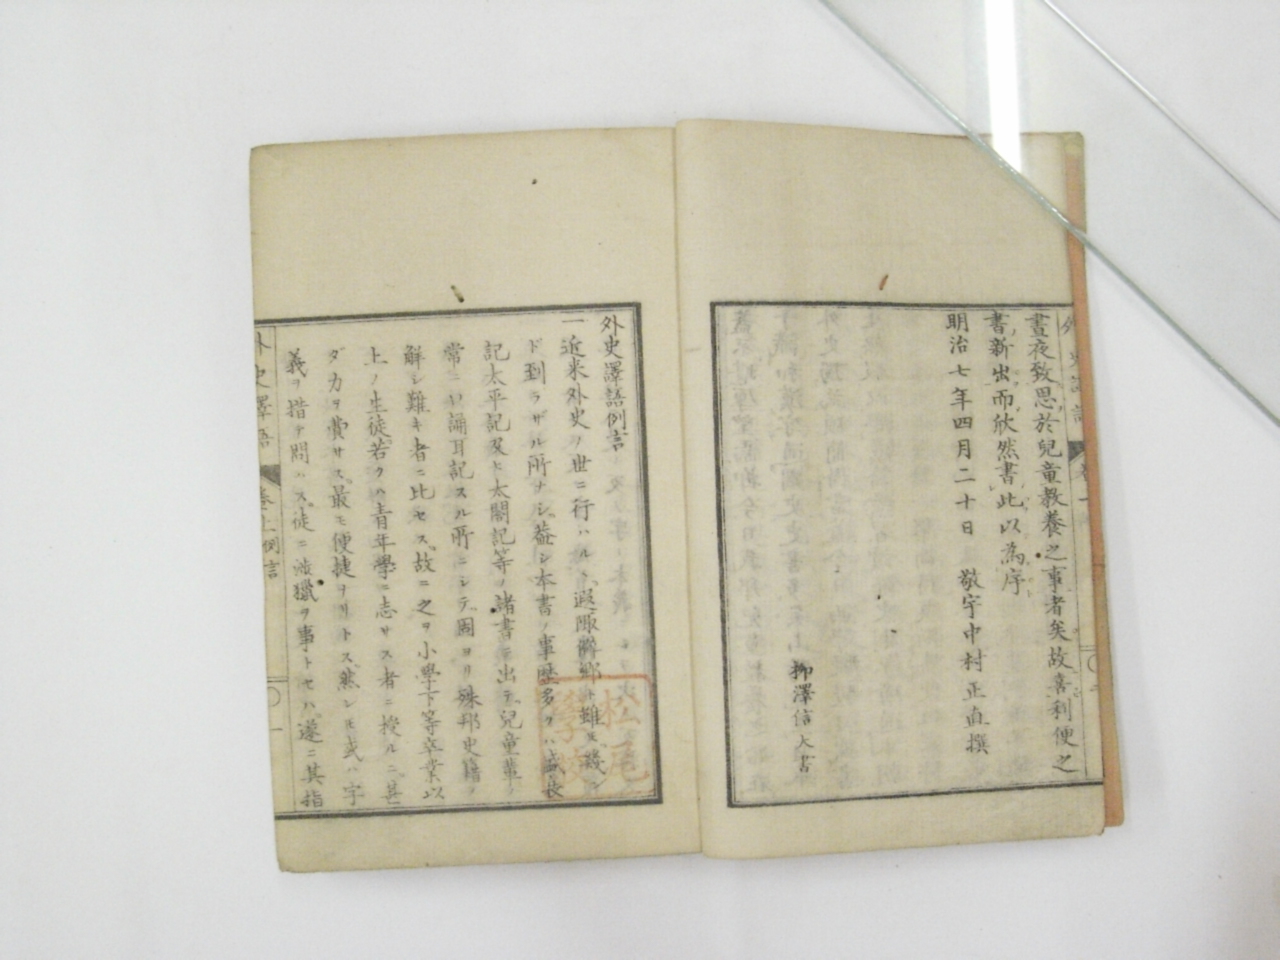 晝夜致思於兒童教養之事者矣故喜利便之
書新出而欣然書此以為序
明治七年四月二十日 敬宇中村正直撰
柳澤信大書
外史譯語例言
一近来外史ノ世ニ行ハルヽ遐陬僻鄉ト雖モ
ド到ラザル所ナシ蓋シ本書ノ事歴多クハ盛衰
記太平記及ヒ太閤記等ノ諸書ニ出テ兒童輩ノ
常ニ口誦耳記スル所ニシテ固ヨリ殊邦史籍ノ
解シ難キ者ニ比セス故ニ之ヲ小學下等卒業以
上ノ生徒若クハ青年學ニ志サス者ニ授ルニ甚
ダ力ヲ費サス最モ便捷ナリトス然シモ或ハ字
義ヲ措テ問ハス徒ニ渉獵ヲ事トセハ遂ニ其指
外史譯語 卷上例言
松尾學校